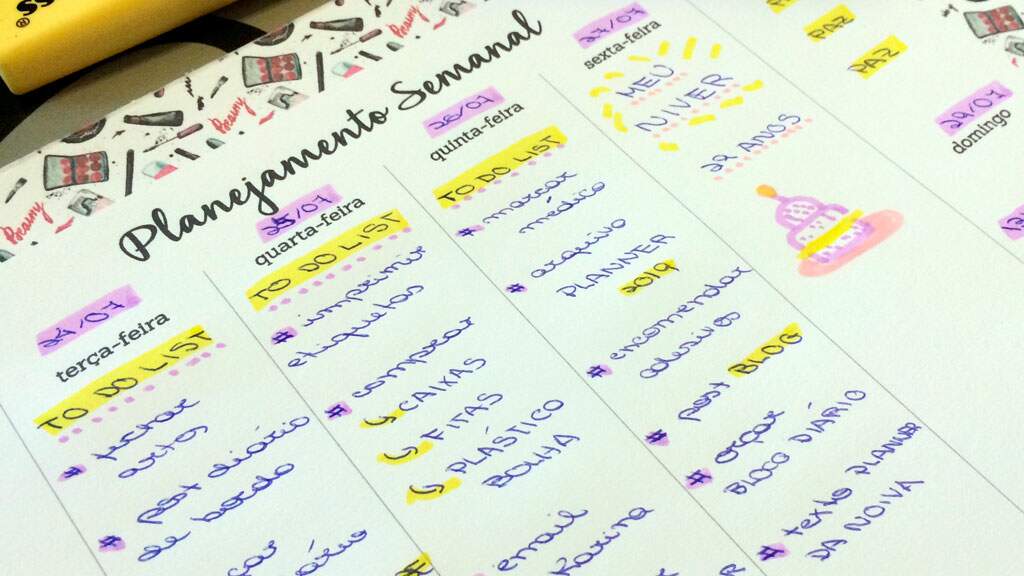 Planejamento Semanal
24/07
terça-feira
TO DO LIST
artes
# post diário
de bordo
25/07
quarta-feira
TO DO LIST
# imprimir
etiquetas
# comprar
CAIXAS
FITAS
PLÁSTICO
BOLHA
email
Karina
26/07
quinta-feira
TO DO LIST
# marcar
médico
# arquivo
PLANNER
2019
# encomendar
adesivos
# post BLOG
# orçar
BLOCO DIÁRIO
# texto PLANNER
DA NOIVA
27/07
sexta-feira
MEU
NIVER
22 ANOS
PAZ
PAZ
29/07
domingo